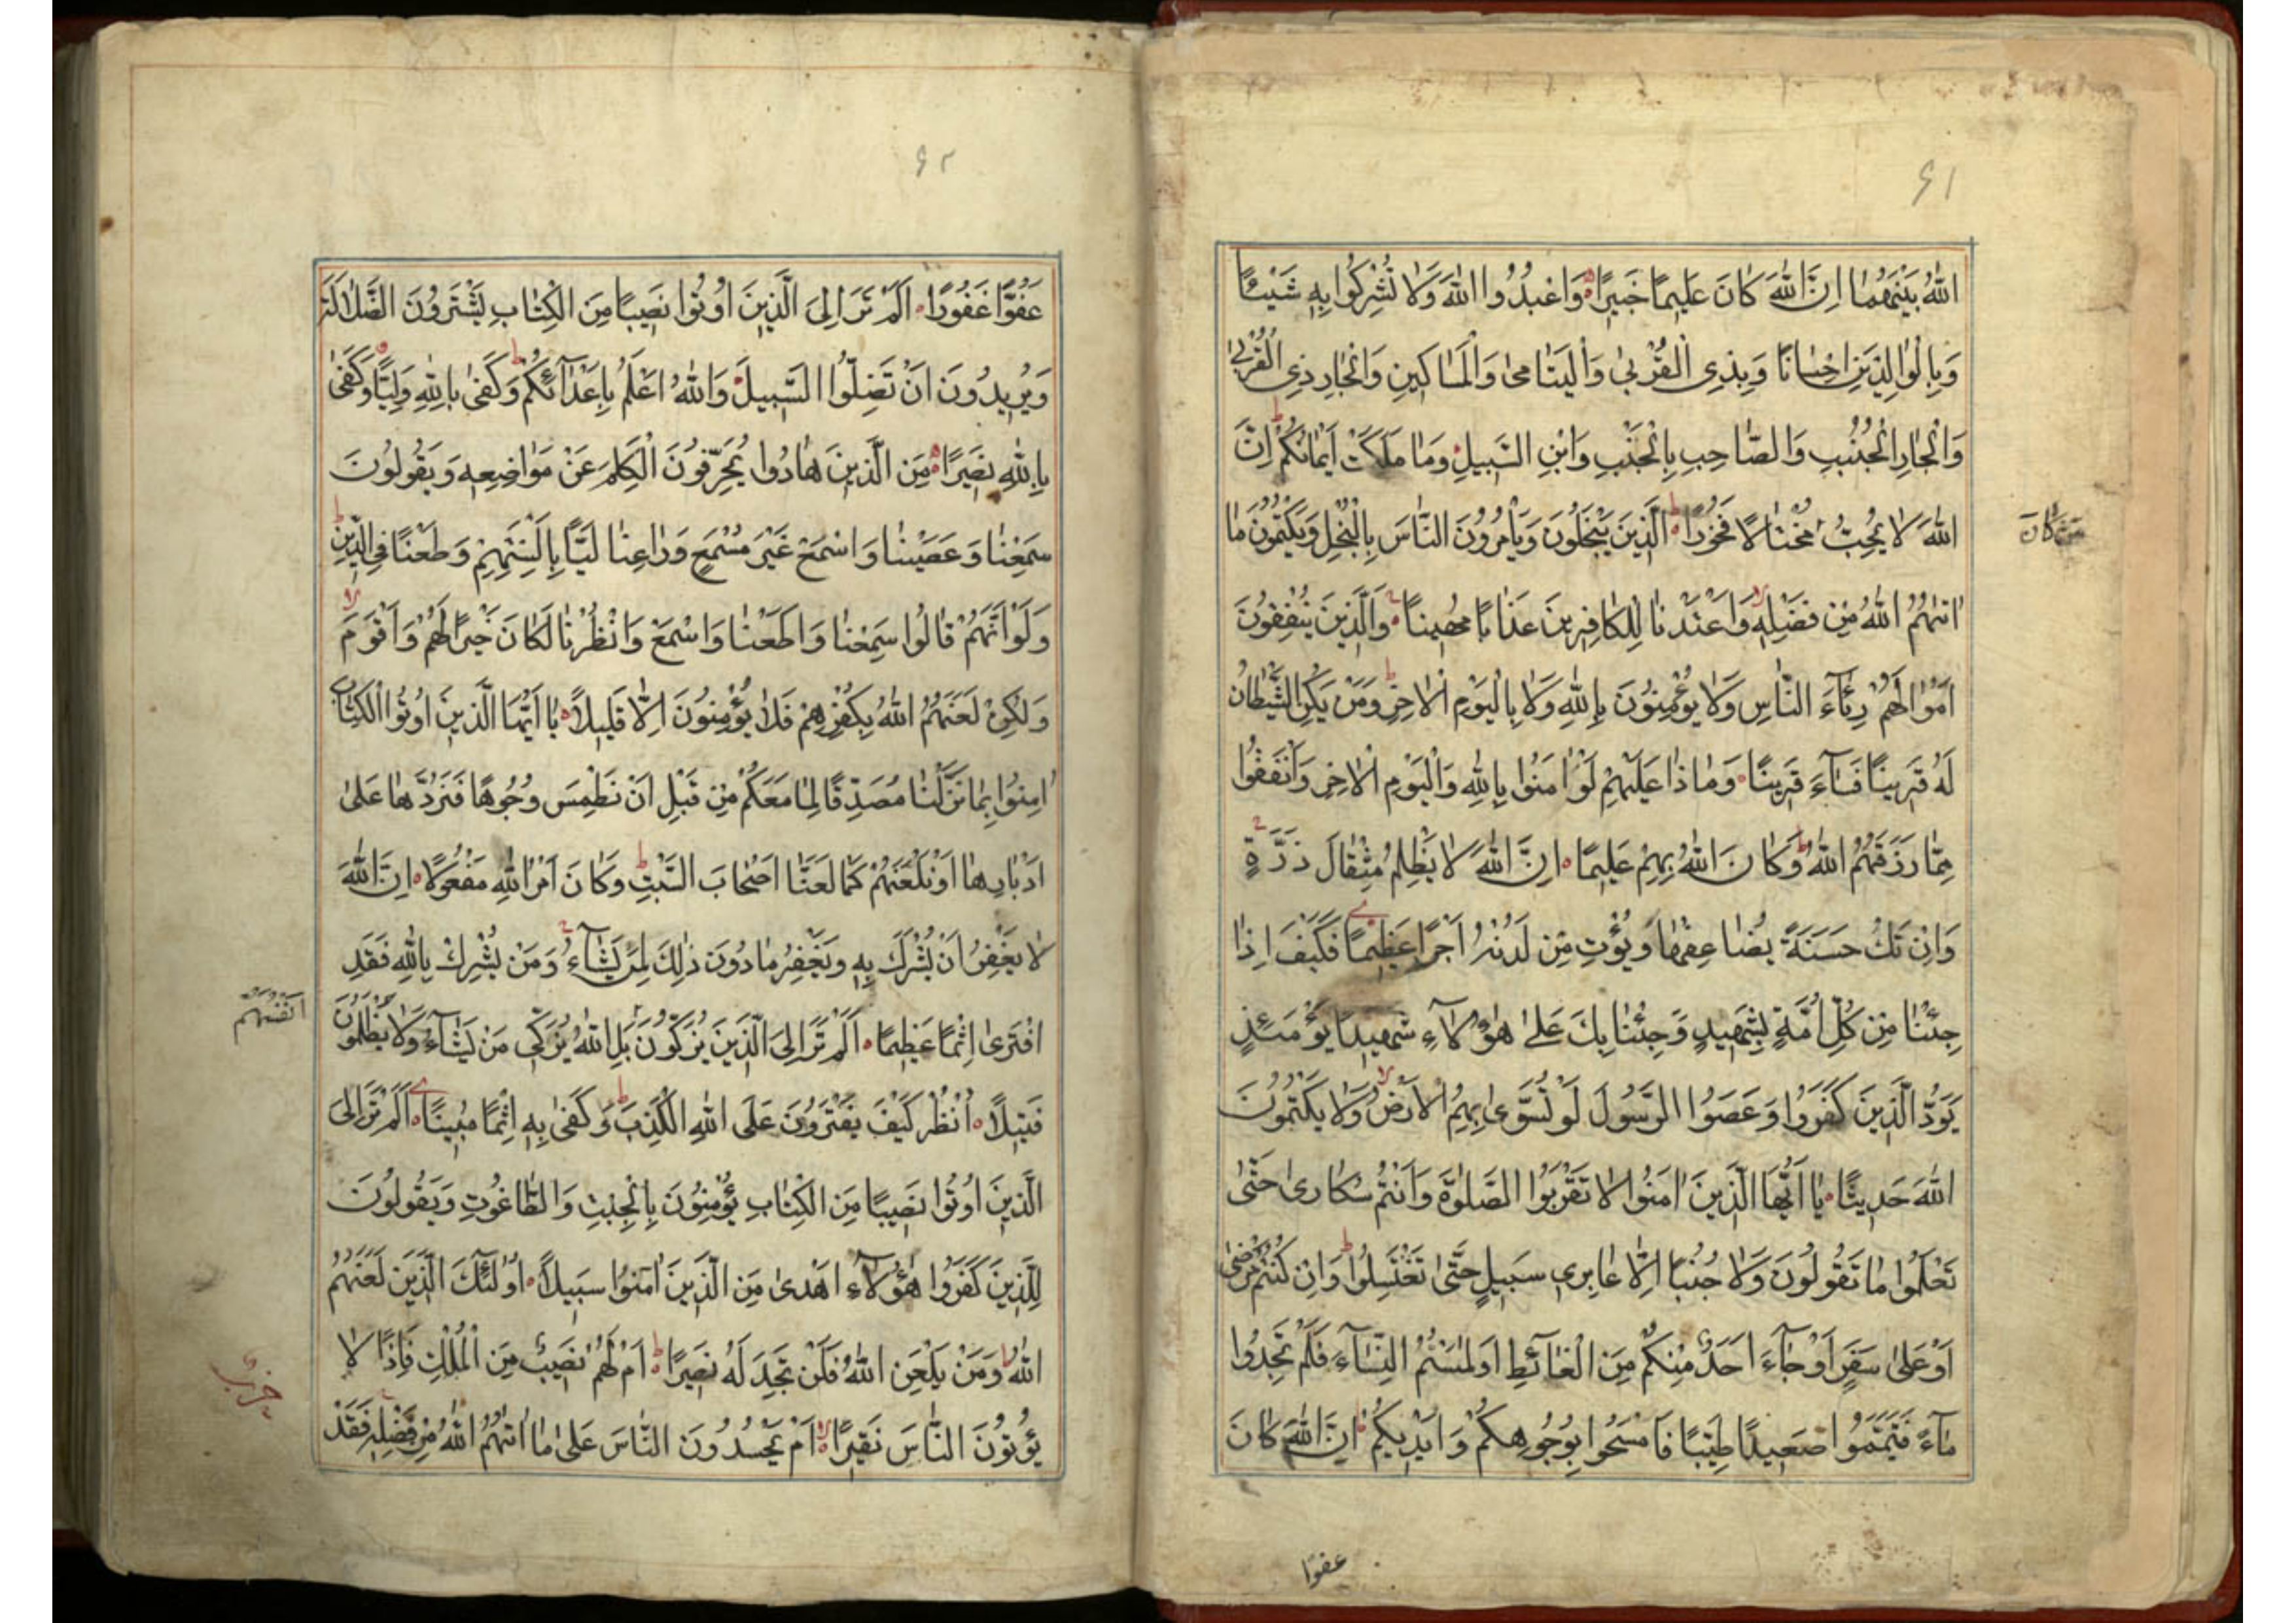 ٦١
اللهُ بَيْنَهُمَا اِنَّ اللهَ كَانَ عَلِيمًا خَبِيرًا وَاعْبُدُوا اللهَ وَلَا تُشْرِكُوا بِهِ شَيْئًا
وَبِالْوَالِدَيْنِ اِحْسَانًا وَبِذِى الْقُرْبٰى وَالْيَتَامٰى وَالْمَسَاكِينِ وَالْجَارِ ذِى الْقُرْبٰى
وَالْجَارِ الْجُنُبِ وَالصَّاحِبِ بِالْجَنْبِ وَابْنِ السَّبِيلِ وَمَا مَلَكَتْ اَيْمَانُكُمْ اِنَّ
اللهَ لَا يُحِبُّ مُخْتَالًا فَخُورًا الَّذِينَ يَبْخَلُونَ وَيَأْمُرُونَ النَّاسَ بِالْبُخْلِ وَيَكْتُمُونَ مَا
مَنْ كَانَ
اٰتٰيهُمُ اللهُ مِنْ فَضْلِهِ وَاَعْتَدْنَا لِلْكَافِرِينَ عَذَابًا مُهِينًا وَالَّذِينَ يُنْفِقُونَ
اَمْوَالَهُمْ رِئَآءَ النَّاسِ وَلَا يُؤْمِنُونَ بِاللهِ وَلَا بِالْيَوْمِ الْاٰخِرِ وَمَنْ يَكُنِ الشَّيْطَانُ
لَهُ قَرِينًا فَسَآءَ قَرِينًا وَمَاذَا عَلَيْهِمْ لَوْ اٰمَنُوا بِاللهِ وَالْيَوْمِ الْاٰخِرِ وَاَنْفَقُوا
مِمَّا رَزَقَهُمُ اللهُ وَكَانَ اللهُ بِهِمْ عَلِيمًا اِنَّ اللهَ لَا يَظْلِمُ مِثْقَالَ ذَرَّةٍ
وَاِنْ تَكُ حَسَنَةً يُضَاعِفْهَا وَيُؤْتِ مِنْ لَدُنْهُ اَجْرًا عَظِيمًا فَكَيْفَ اِذَا
جِئْنَا مِنْ كُلِّ اُمَّةٍ بِشَهِيدٍ وَجِئْنَا بِكَ عَلٰى هٰؤُلَآءِ شَهِيدًا يَوْمَئِذٍ
يَوَدُّ الَّذِينَ كَفَرُوا وَعَصَوُا الرَّسُولَ لَوْ تُسَوّٰى بِهِمُ الْاَرْضُ وَلَا يَكْتُمُونَ
اللهَ حَدِيثًا يَا اَيُّهَا الَّذِينَ اٰمَنُوا لَا تَقْرَبُوا الصَّلٰوةَ وَاَنْتُمْ سُكَارٰى حَتّٰى
تَعْلَمُوا مَا تَقُولُونَ وَلَا جُنُبًا اِلَّا عَابِرِى سَبِيلٍ حَتّٰى تَغْتَسِلُوا وَاِنْ كُنْتُمْ مَرْضٰى
اَوْ عَلٰى سَفَرٍ اَوْ جَآءَ اَحَدٌ مِنْكُمْ مِنَ الْغَآئِطِ اَوْ لٰمَسْتُمُ النِّسَآءَ فَلَمْ تَجِدُوا
مَآءً فَتَيَمَّمُوا صَعِيدًا طَيِّبًا فَامْسَحُوا بِوُجُوهِكُمْ وَاَيْدِيكُمْ اِنَّ اللهَ كَانَ
عفوًا
٦٢
عَفُوًّا غَفُورًا اَلَمْ تَرَ اِلَى الَّذِينَ اُوتُوا نَصِيبًا مِنَ الْكِتَابِ يَشْتَرُونَ الضَّلَالَةَ
وَيُرِيدُونَ اَنْ تَضِلُّوا السَّبِيلَ وَاللهُ اَعْلَمُ بِاَعْدَآئِكُمْ وَكَفٰى بِاللهِ وَلِيًّا وَكَفٰى
بِاللهِ نَصِيرًا مِنَ الَّذِينَ هَادُوا يُحَرِّفُونَ الْكَلِمَ عَنْ مَوَاضِعِهِ وَيَقُولُونَ
سَمِعْنَا وَعَصَيْنَا وَاسْمَعْ غَيْرَ مُسْمَعٍ وَرَاعِنَا لَيًّا بِاَلْسِنَتِهِمْ وَطَعْنًا فِى الدِّينِ
وَلَوْ اَنَّهُمْ قَالُوا سَمِعْنَا وَاَطَعْنَا وَاسْمَعْ وَانْظُرْنَا لَكَانَ خَيْرًا لَهُمْ وَاَقْوَمَ
وَلٰكِنْ لَعَنَهُمُ اللهُ بِكُفْرِهِمْ فَلَا يُؤْمِنُونَ اِلَّا قَلِيلًا يَا اَيُّهَا الَّذِينَ اُوتُوا الْكِتَابَ
اٰمِنُوا بِمَا نَزَّلْنَا مُصَدِّقًا لِمَا مَعَكُمْ مِنْ قَبْلِ اَنْ نَطْمِسَ وُجُوهًا فَنَرُدَّهَا عَلٰى
اَدْبَارِهَا اَوْ نَلْعَنَهُمْ كَمَا لَعَنَّا اَصْحَابَ السَّبْتِ وَكَانَ اَمْرُ اللهِ مَفْعُولًا اِنَّ اللهَ
لَا يَغْفِرُ اَنْ يُشْرَكَ بِهِ وَيَغْفِرُ مَا دُونَ ذٰلِكَ لِمَنْ يَشَآءُ وَمَنْ يُشْرِكْ بِاللهِ فَقَدِ
افْتَرٰى اِثْمًا عَظِيمًا اَلَمْ تَرَ اِلَى الَّذِينَ يُزَكُّونَ بَلِ اللهُ يُزَكِّى مَنْ يَشَآءُ وَلَا يُظْلَمُونَ
اَنْفُسَهُمْ
فَتِيلًا اُنْظُرْ كَيْفَ يَفْتَرُونَ عَلَى اللهِ الْكَذِبَ وَكَفٰى بِهِ اِثْمًا مُبِينًا اَلَمْ تَرَ اِلَى
الَّذِينَ اُوتُوا نَصِيبًا مِنَ الْكِتَابِ يُؤْمِنُونَ بِالْجِبْتِ وَالطَّاغُوتِ وَيَقُولُونَ
لِلَّذِينَ كَفَرُوا هٰؤُلَآءِ اَهْدٰى مِنَ الَّذِينَ اٰمَنُوا سَبِيلًا اُولٰئِكَ الَّذِينَ لَعَنَهُمُ
اللهُ وَمَنْ يَلْعَنِ اللهُ فَلَنْ تَجِدَ لَهُ نَصِيرًا اَمْ لَهُمْ نَصِيبٌ مِنَ الْمُلْكِ فَاِذًا لَا
حزب
يُؤْتُونَ النَّاسَ نَقِيرًا اَمْ يَحْسُدُونَ النَّاسَ عَلٰى مَا اٰتٰيهُمُ اللهُ مِنْ فَضْلِهِ فَقَدْ